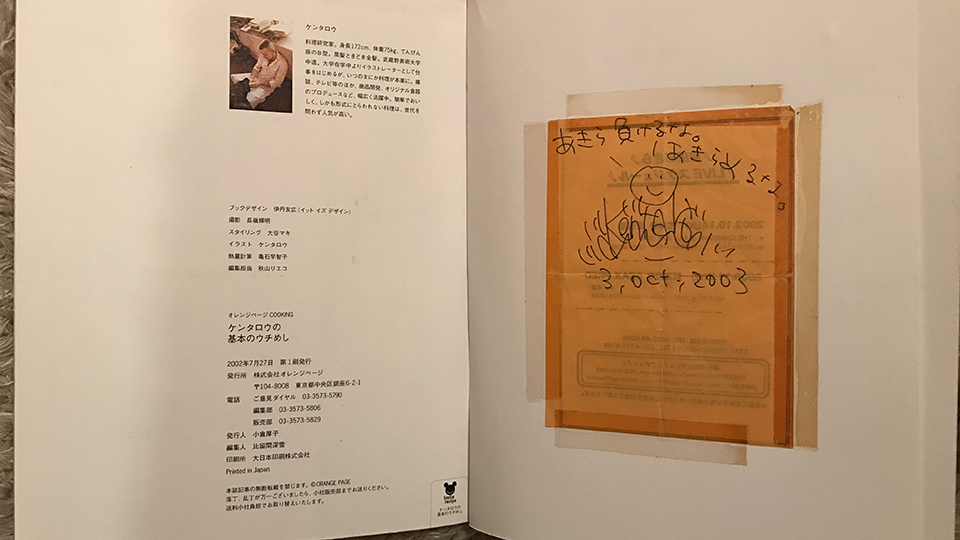 ケンタロウ
料理研究家。身長172cm、体重75kg、てんびん
座のB型。黒髪ときどき金髪。武蔵野美術大学
中退。大学在学中よりイラストレーターとして仕
事をはじめるが、いつのまにか料理が本業に。雑
誌、テレビ等のほか、商品開発、オリジナル食器
のプロデュースなど、幅広く活躍中。簡単でおい
しく、しかも形式にとらわれない料理は、世代を
問わず人気が高い。
ブックデザイン 伊丹友広(イット イズ デザイン)
撮影 長嶺輝明
スタイリング 大谷マキ
イラスト ケンタロウ
熱量計算 亀石早智子
編集担当 秋山リエコ
オレンジページ COOKING
ケンタロウの
基本のウチめし
2002年7月27日 第1刷発行
発行所 株式会社オレンジページ
〒104-8008 東京都中央区銀座6-2-1
電話 ご意見ダイヤル 03-3573-5790
編集部 03-3573-5806
販売部 03-3573-5829
発行人 小倉厚子
編集人 比留間深雪
印刷所 大日本印刷株式会社
Printed in Japan
本誌記事の無断転載を禁じます。©ORANGE PAGE
落丁、乱丁が万一ございましたら、小社販売部までお送りください。
送料小社負担でお取り替えいたします。
ケンタロウの
基本のウチめし
あきら 負けるな。
あきらめるな。
Kentaro
3, Oct, 2003